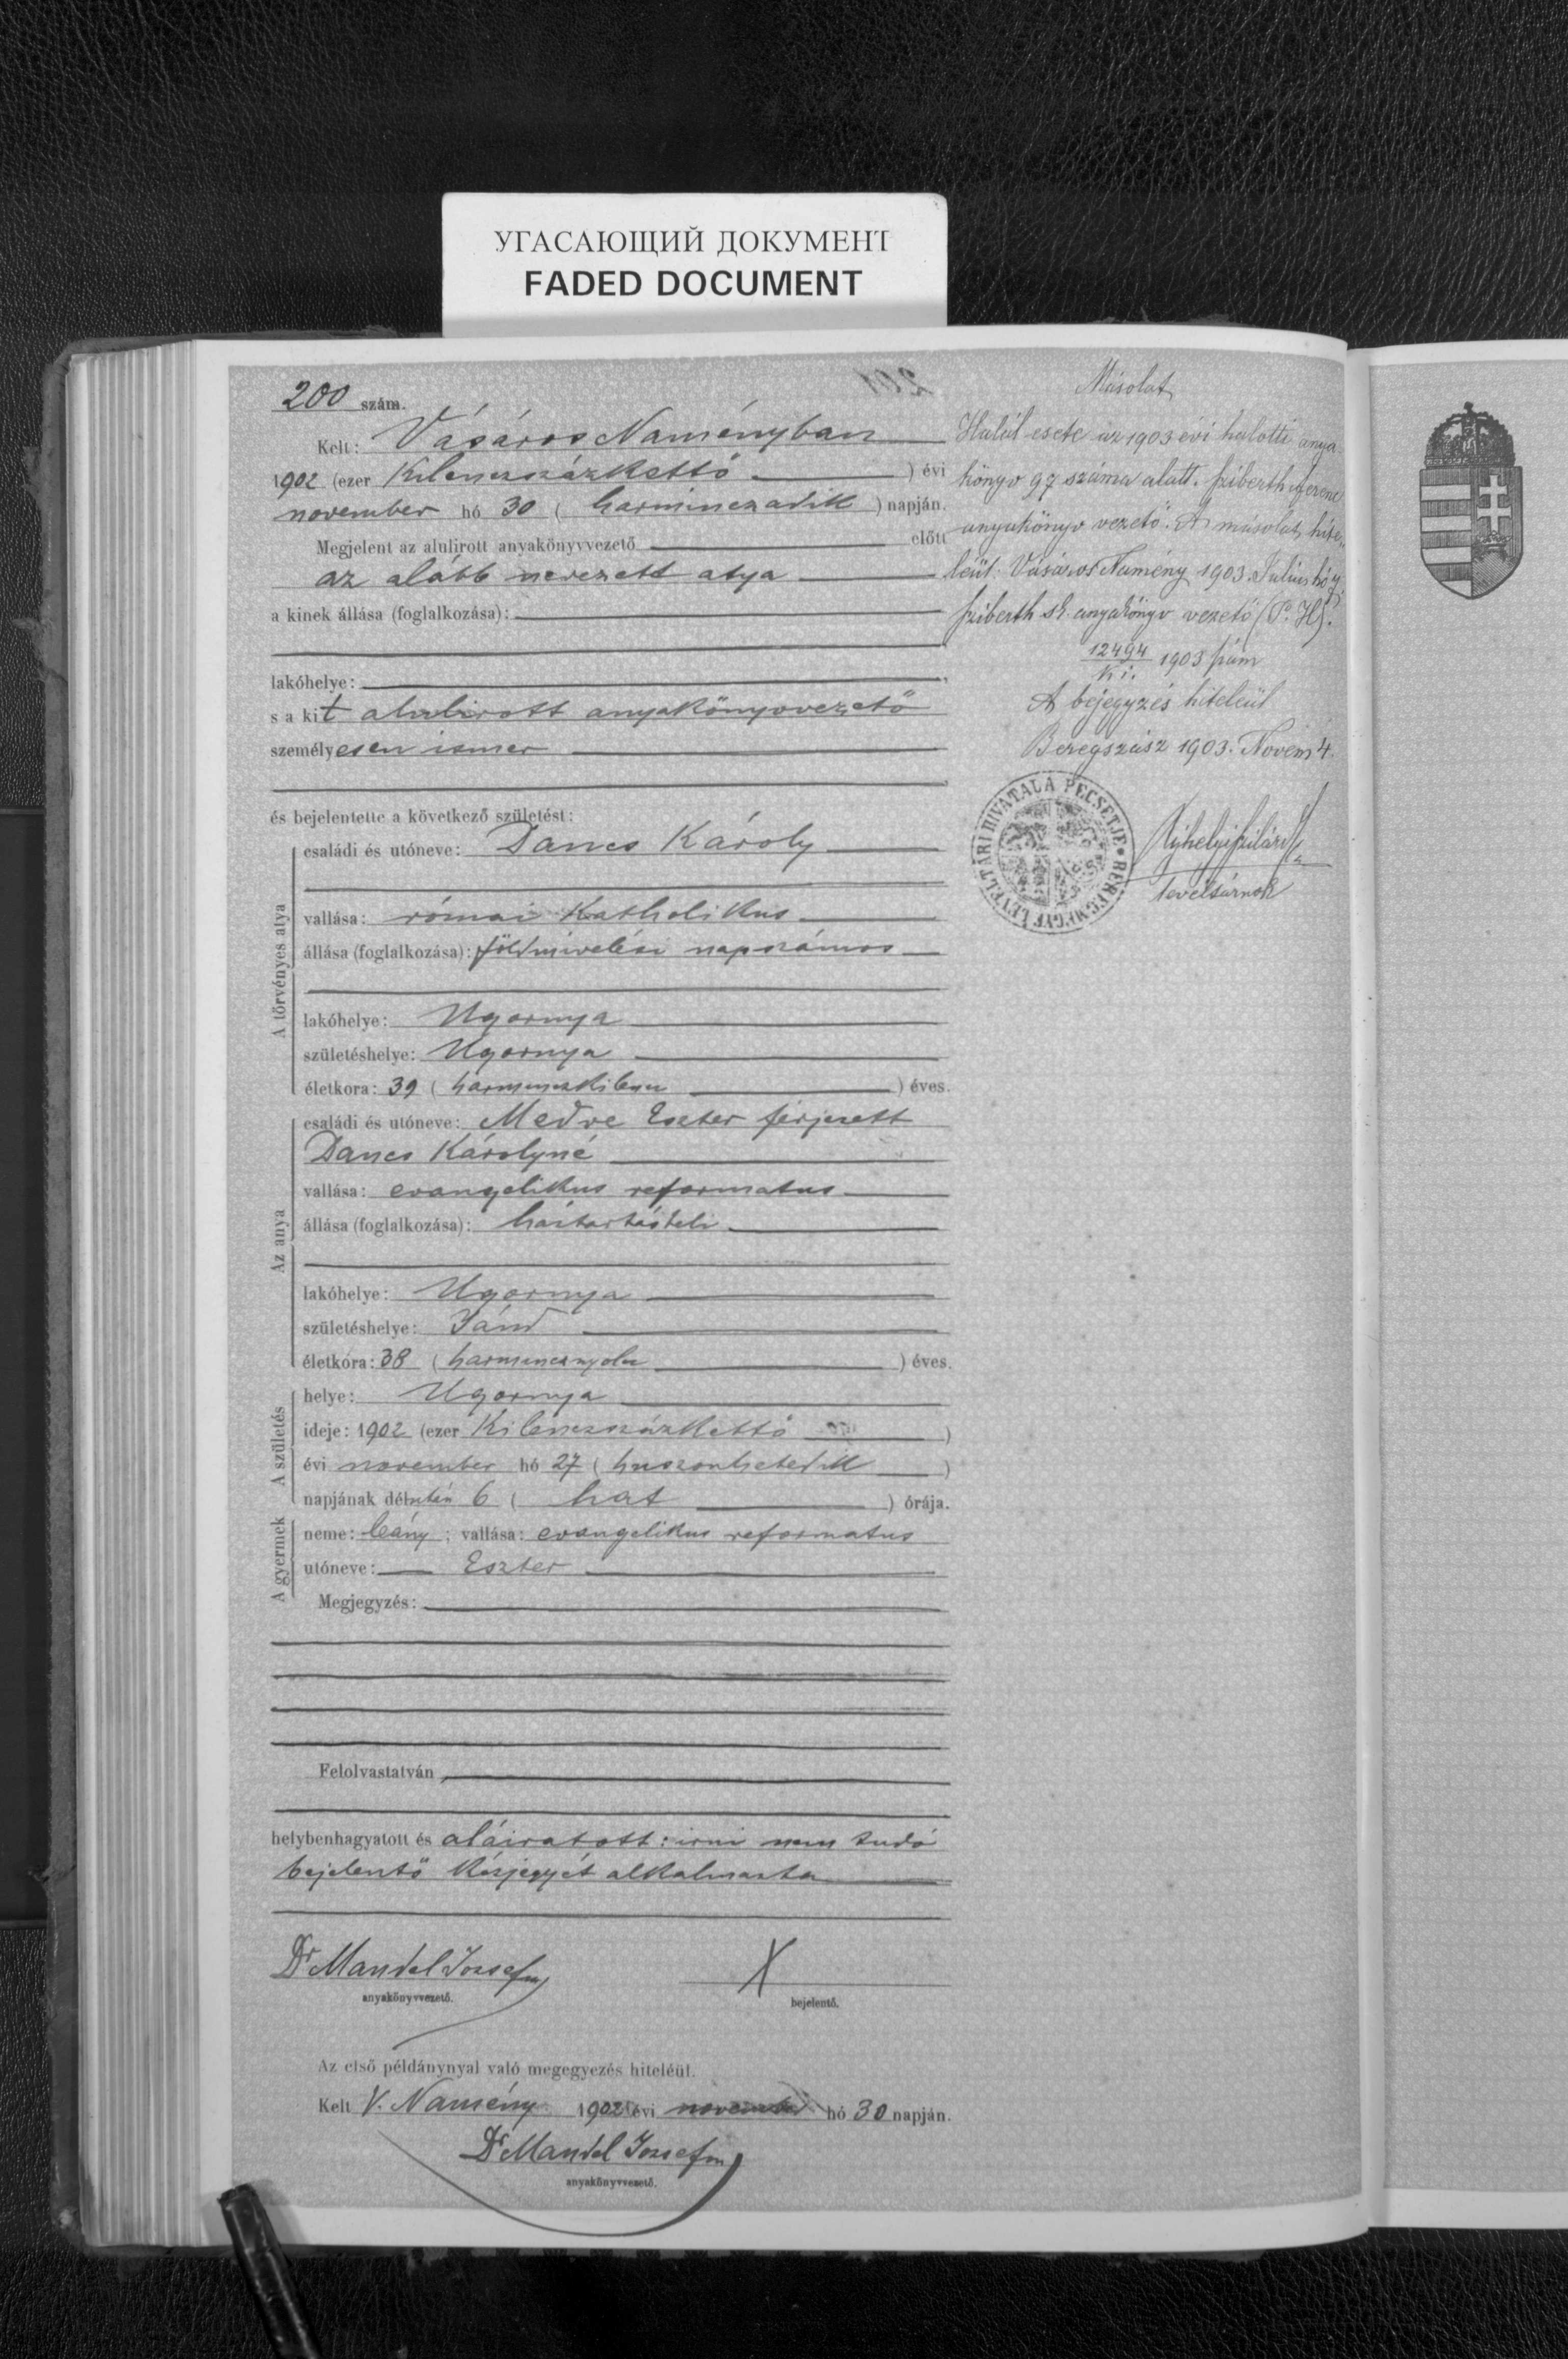 УГАСАЮЩИЙ ДОКУМЕНТ
FADED DOCUMENT
200 szám.
Kelt: Vásáros Naményban
1902 (ezer kilenczszázkettő ) évi
november hó 30 ( harminczadik ) napján.
Megjelent az alulirott anyakönyvvezető előtt
az alább nevezett atya
a kinek állása (foglalkozása):
lakóhelye:
s a kit alulirott anyakönyvvezető
személyesen ismer
és bejelentette a következő születést:
A törvényes atya
családi és utóneve: Dancs Károly
vallása: római katholikus
állása (foglalkozása): földmivelési napszámos
lakóhelye: Ugornya
születéshelye: Ugornya
életkora: 39 ( harminczkilencz ) éves.
Az anya
családi és utóneve: Medve Eszter férjezett
Dancs Károlyné
vallása: evangelikus reformatus
állása (foglalkozása): háztartásbeli
lakóhelye: Ugornya
születéshelye: Jánd
életkora: 38 ( harmincznyolcz ) éves.
A születés
helye: Ugornya
ideje: 1902 (ezer kilenczszázkettő )
évi november hó 27 ( huszonhetedik )
napjának délután 6 ( hat ) órája.
A gyermek
neme: leány ; vallása: evangelikus reformatus
utóneve: Eszter
Megjegyzés:
Felolvastatván,
helybenhagyatott és aláiratott: irni nem tudó
bejelentő kézjegyét alkalmazta
Dr Mandel József
X
anyakönyvvezető.
bejelentő.
Az első példánynyal való megegyezés hiteléül.
Kelt V. Namény 1902 évi november hó 30 napján.
Dr Mandel József
anyakönyvvezető.
Másolat
Halál esete az 1903 évi halotti anya
könyv 97 száma alatt. Sziberth Ferencz
anyakönyv vezető. A másolat hite
leül: Vásáros Namény 1903 Julius hó
Sziberth sk. anyakönyv vezető (P. H).
12494
ki. 1903 szám
A bejegyzés hiteleül
Beregszász 1903. Novem 4.
LEVÉLTÁRI HIVATALA PECSÉTJE
levéltárnok